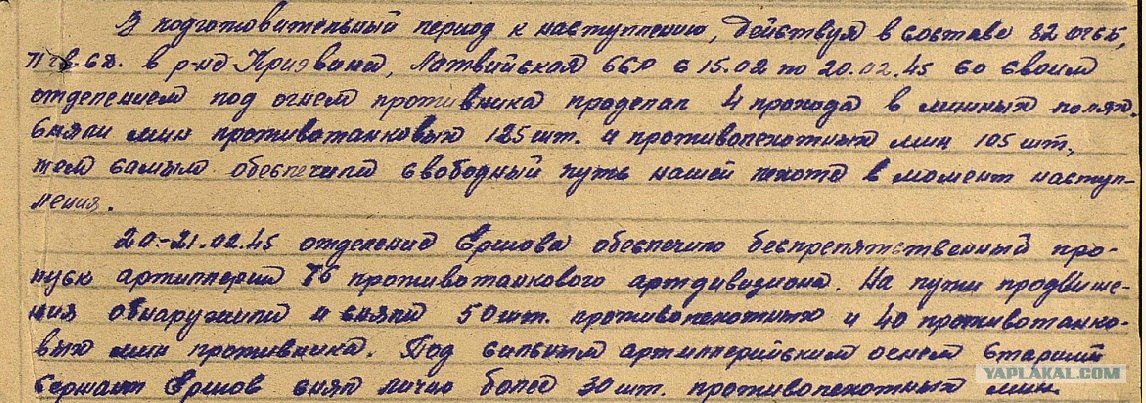 В подготовительный период к наступлению, действуя в составе 82
в р-не Криевини, Латвийская ССР с 15.02 по 20.02.45 со своим
отделением под огнем противника проделал 4 прохода в минных полях,
сняли мин противотанковых 125 шт. и противопехотных мин 105 шт,
тем самым обеспечили свободный путь нашей пехоте в момент наступ-
ления.
20-21.02.45 отделение Ершова обеспечило беспрепятственный про-
пуск артиллерии 76 противотанкового артдивизиона. На пути продвиже-
ния обнаружили и сняли 50 шт. противопехотных и 40 противотанко-
вых мин противника. Под сильным артиллерийским огнем Старший
Сержант Ершов снял лично более 30 шт. противопехотных мин
YAPLAKAL.COM